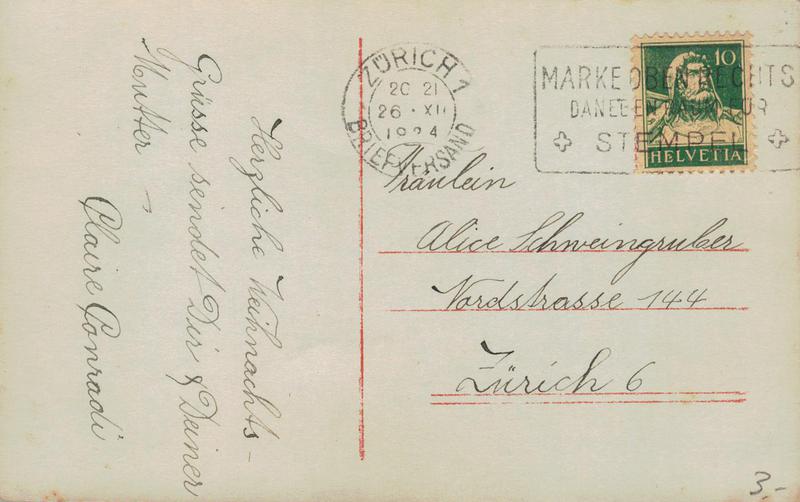 Herzliche Weihnachts-
Grüsse sendet Dir & Deiner
Mutter –
Claire Conradi
ZÜRICH 1
20 21
26 · XII
1924
BRIEFVERSAND
MARKE OBEN RECHTS
DANEBEN RAUM FÜR
STEMPEL
10
HELVETIA
Fräulein
Alice Schweingruber
Nordstrasse 144
Zürich 6
3.-